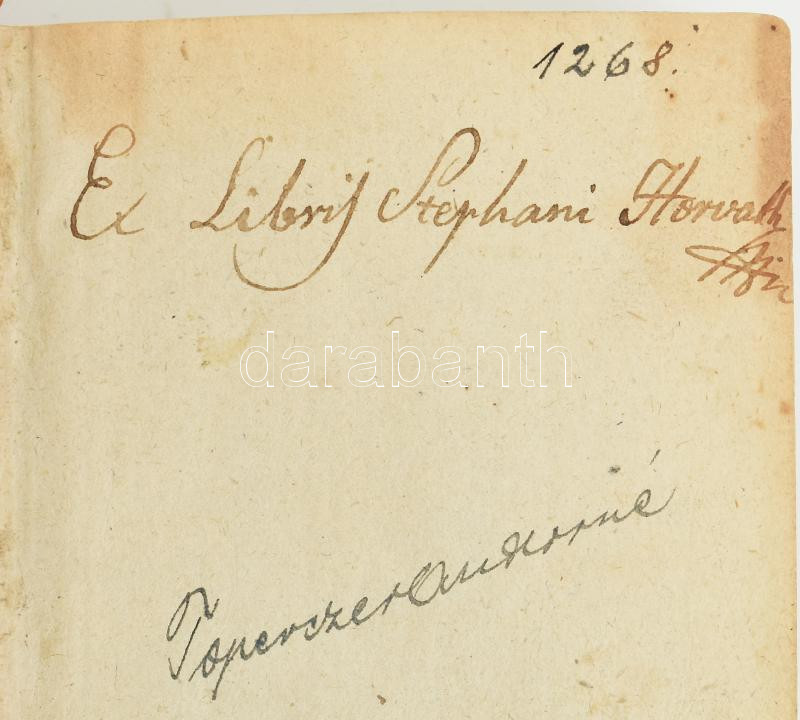 1268.
Ex Libris Stephani Horvath
darabanth
Toperczer Andorné